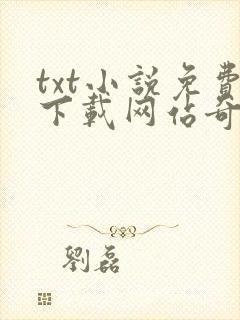 txt小說免費
下載网佔奇
劉磊